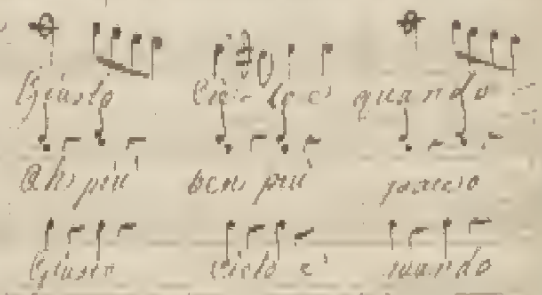 Giusto Cielo e quando
Ah, più ben più
Giusto Cielo e quando